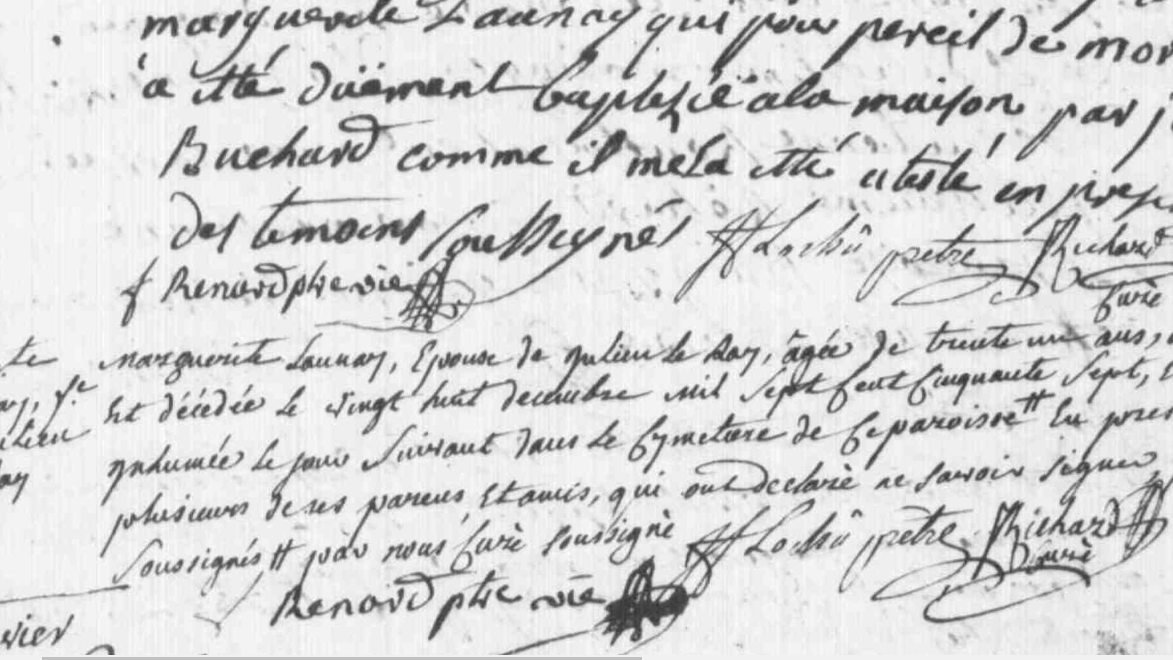 marguerite Launay qui pour pereil de mor
a etté düement baptizé a la maison par j
Buchard comme il me la etté atesté en pres
des temoins soussignés Lochû prêtre Richard
Renard ptre vic curé
te marguerite Launay, Epouse de Julien Le Ray, âgée de trente un ans,
ay, f.e Est décédée Le vingt huit decembre mil sept Cent Cinquante Sept,
Julien ynhumée Le jour Suivant dans Le Cymetiere de Ce paroisse En pres
ay plusieurs de ses parens, Et amis, qui ont declaré ne savoir signer
Soussignés par nous Curé soussigné Lochû prêtre Richard
Renard ptre vic curé
vier